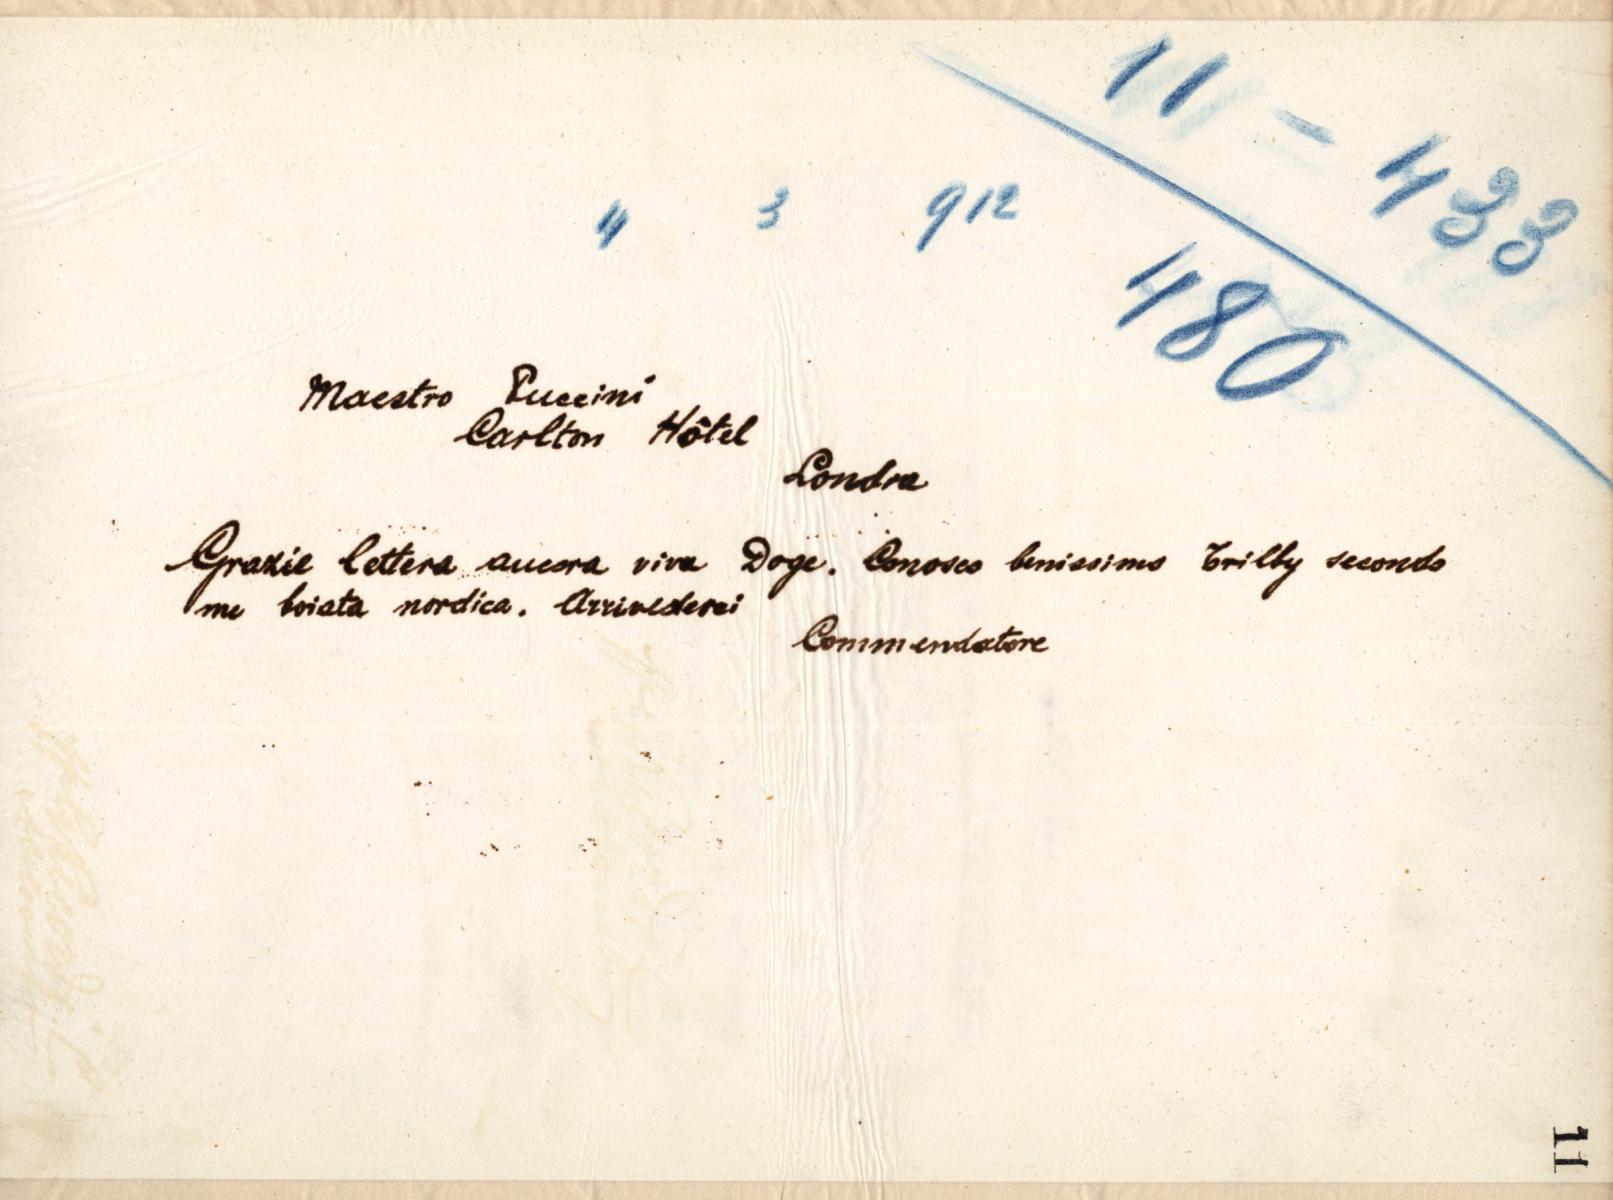 11 - 433
4 3 912
480
Maestro Puccini
Carlton Hôtel
Londra
Grazie lettera ancora viva Doge. Conosco benissimo Trilby secondo
me boiata nordica. Arrivederci
Commendatore
11